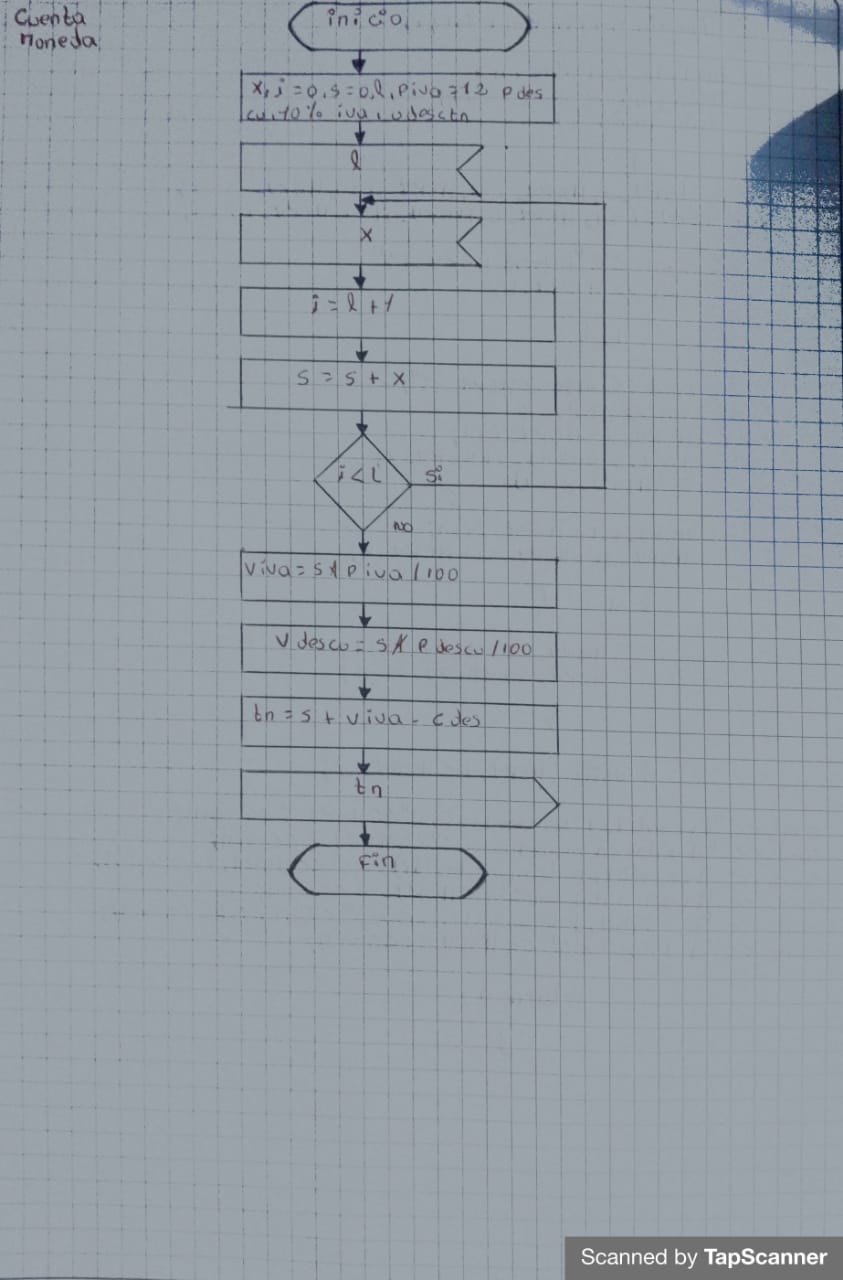 Cuenta
moneda
inicio
x, i = 0, s = 0, l, piva = 12 p des
cu, 10% iva, vdesctn
l
x
i = l + 1
s = s + x
i < l
si
no
viva = s * p iva / 100
v descu = s * p descu / 100
tn = s + viva - c des
tn
Fin
Scanned by TapScanner